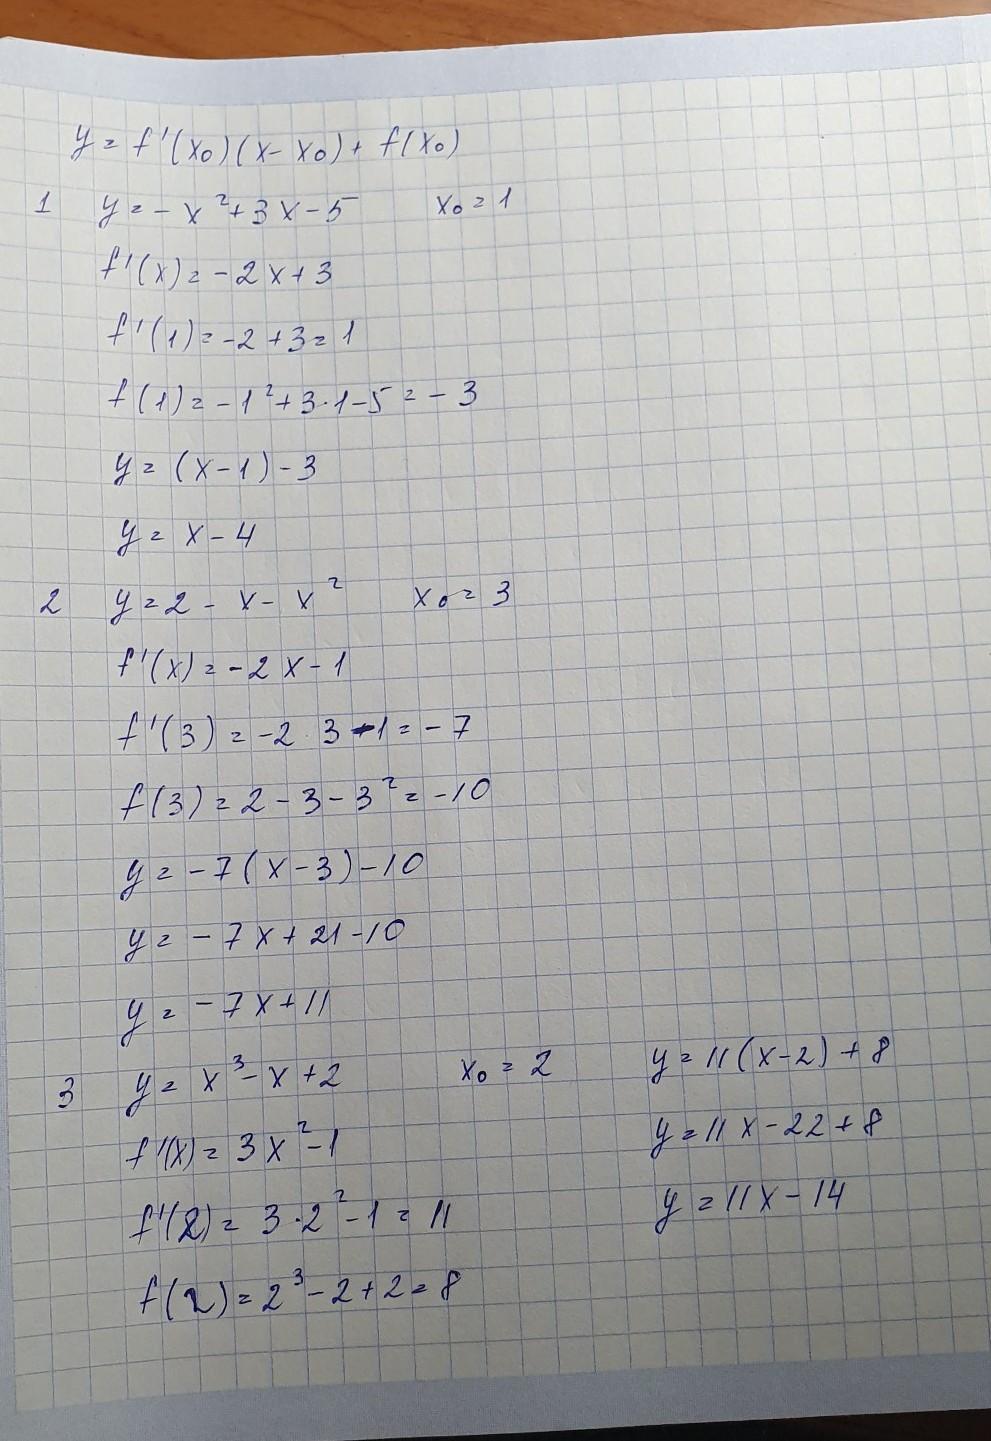 y = f'(x₀)(x - x₀) + f(x₀)
1 y = - x² + 3x - 5 x₀ = 1
f'(x) = -2x + 3
f'(1) = -2 + 3 = 1
f(1) = -1² + 3·1 - 5 = - 3
y = (x - 1) - 3
y = x - 4
2 y = 2 - x - x² x₀ = 3
f'(x) = -2x - 1
f'(3) = -2·3 - 1 = - 7
f(3) = 2 - 3 - 3² = -10
y = -7(x - 3) - 10
y = - 7x + 21 - 10
y = - 7x + 11
3 y = x³ - x + 2 x₀ = 2
f'(x) = 3x² - 1
f'(2) = 3·2² - 1 = 11
f(2) = 2³ - 2 + 2 = 8
y = 11(x - 2) + 8
y = 11x - 22 + 8
y = 11x - 14